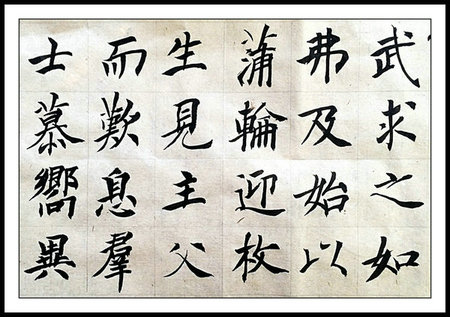 武求之如
弗及始以
蒲輪迎枚
生見主父
而歎息羣
士慕嚮異